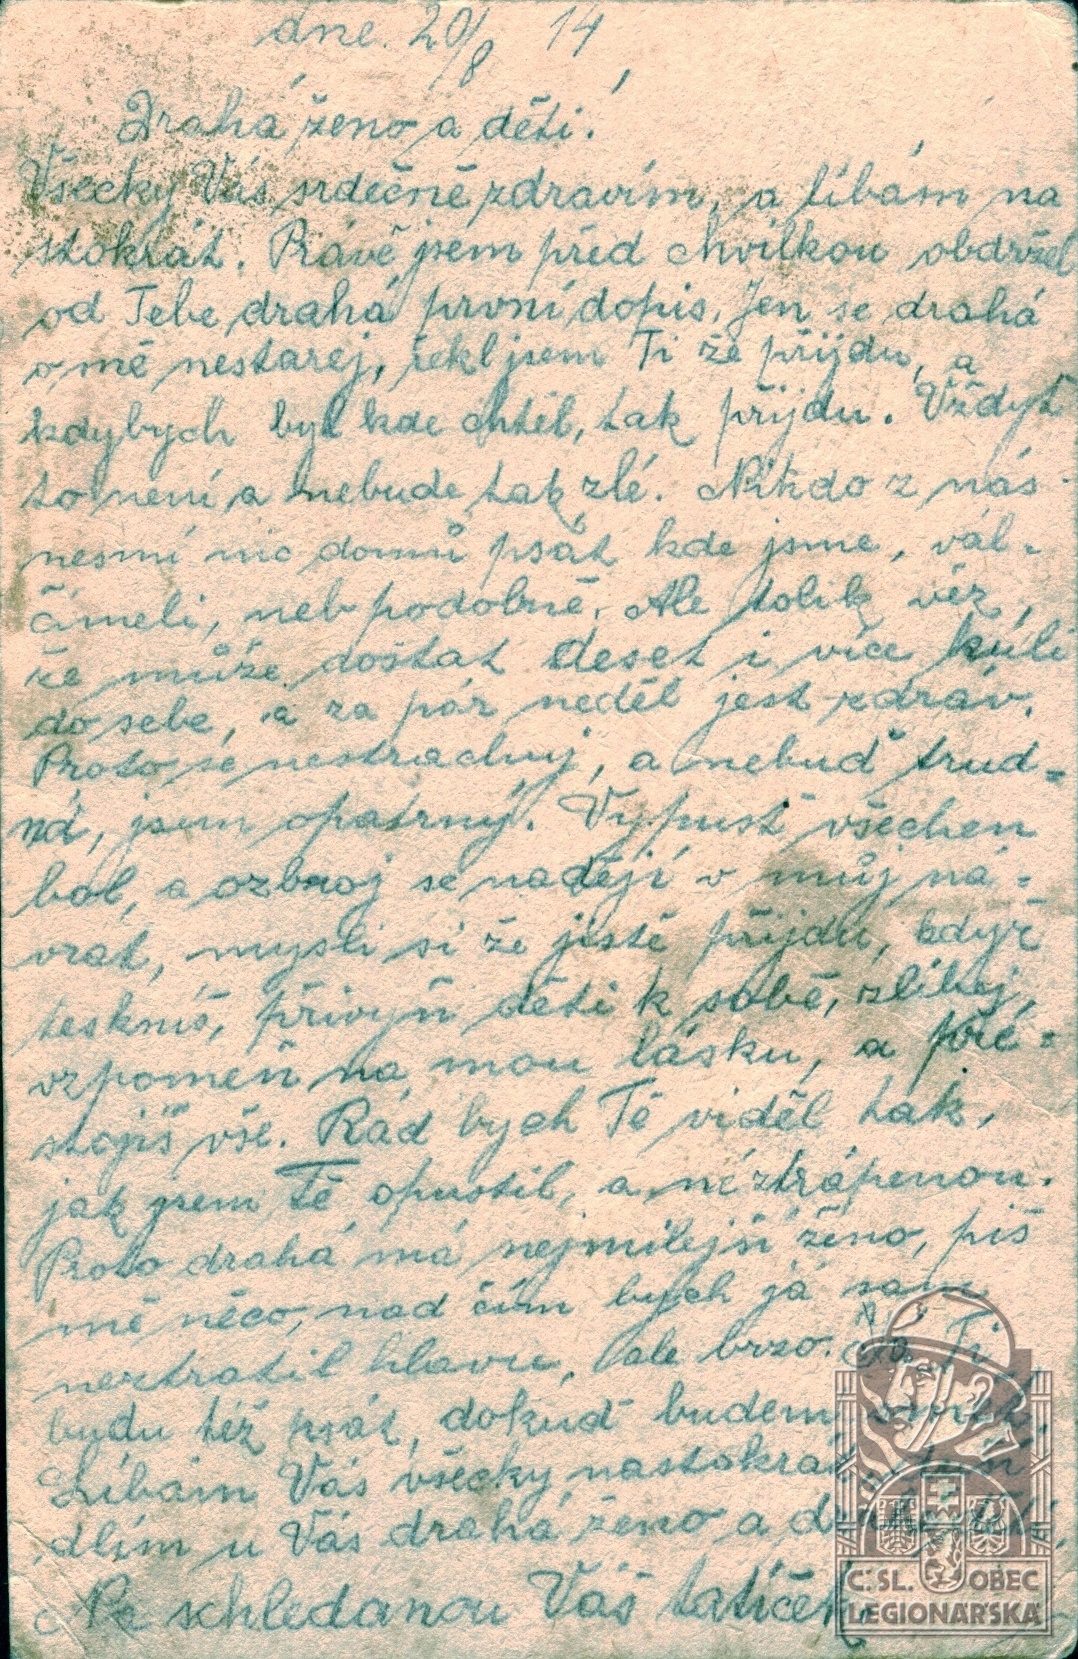 dne. 20/8 14
Drahá ženo a děti!
Všecky Vás srdečně zdravím, a líbám na
stokrát. Právě jsem před chvilkou obdržel
od Tebe drahá první dopis. Jen se drahá
o mě nestarej, řekl jsem Ti že přijdu, a
kdybych byl kde chtěl, tak přijdu. Vždyt
to není a nebude tak zlé. Nikdo z nás
nesmí nic domů psát kde jsme, vál-
čímeli, neb podobně. Ale tolik věz,
že může dostat deset i více kúlí
do sebe, a za pár neděl jest zdráv.
Proto se nestrachuj, a nebuď trud=
ná, jsem opatrný. Vypusť všechen
bol, a ozbroj se nadějí v můj ná=
vrat, mysli si že jistě přijdu, když
teskníš, přiviň děti k sobě, zlíbej,
vzpomeň na mou lásku, a pře=
stojíš vše. Rád bych Tě viděl tak,
jak jsem Tě opustil, a ne ztrápenou.
Proto drahá má nejmilejší ženo, piš
mě něco, nad čím bych já sám
neztratil hlavu, ale brzo. Ti
budu též psát, dokud budem
Líbám Vás všecky nastokrát,
dlím u Vás drahá ženo a
Na schledanou Váš tatíček
Č. SL. OBEC
LEGIONÁŘSKÁ